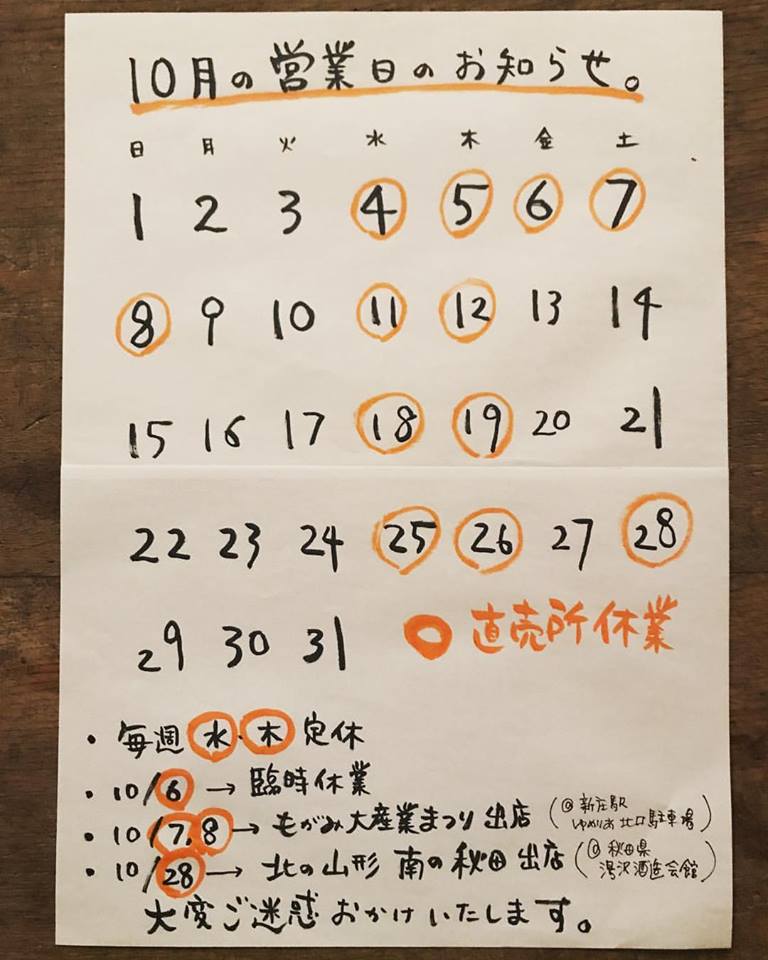 10月の営業日のお知らせ。
日 月 火 水 木 金 土
1 2 3 4 5 6 7
8 9 10 11 12 13 14
15 16 17 18 19 20 21
22 23 24 25 26 27 28
29 30 31 直売所休業
・毎週 水・木 定休
・10/6 → 臨時休業
・10/7.8 → もがみ大産業まつり 出店 (@新庄駅 ゆめりあ 北口駐車場)
・10/28 → 北の山形 南の秋田 出店 (@秋田県 湯沢酒造会館)
大変ご迷惑おかけいたします。